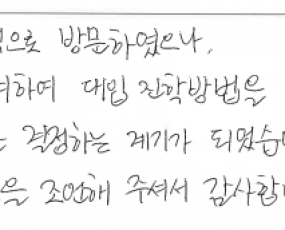 으로 방문하였으나,
하여 대입 진학방법을
결정하는 계기가 되었습
을 조언해 주셔서 감사합